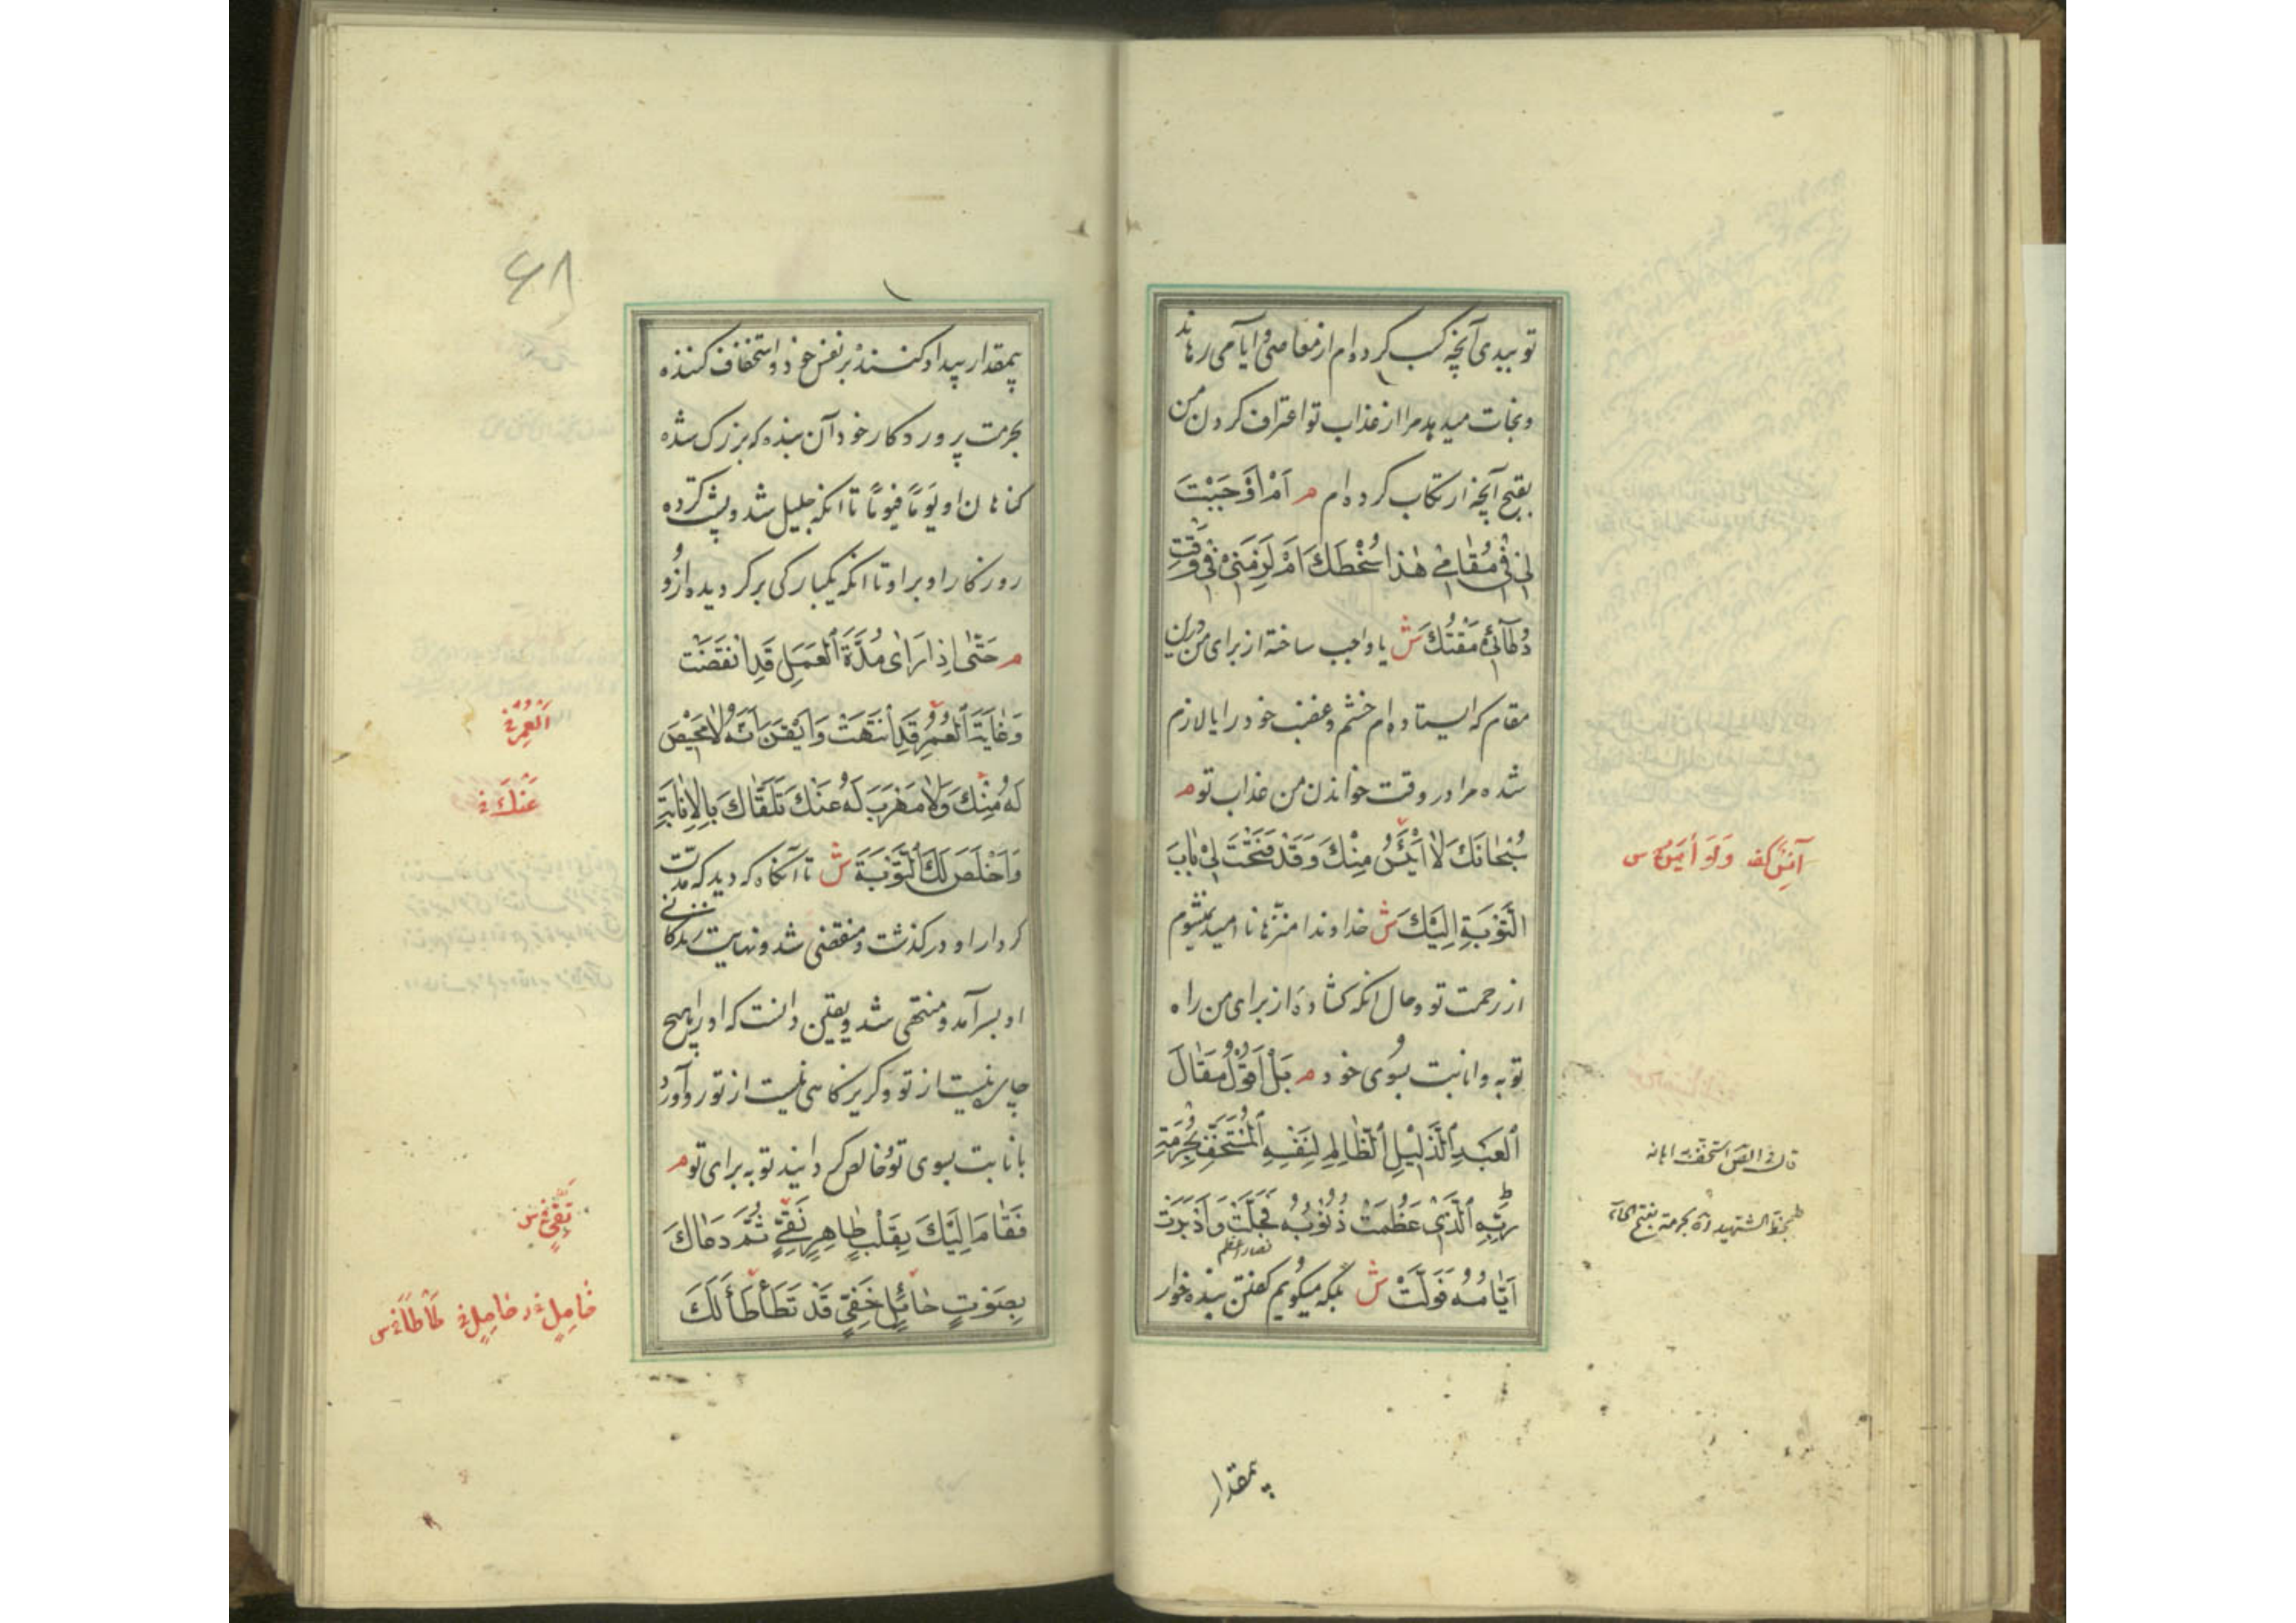 تو ببدی آنچه کسب کرده‌ام از معاصی و ایا می‌رهاند
و نجات میدهد مرا از عذاب تو اعتراف کردن من
بقبح آنچه ارتکاب کرده‌ام م اَمْ اَوْجَبْتَ
لِی فی مَقٰامی هٰذٰا سُخْطَکَ اَمْ لَزِمَنی فی وَقْتِ
دُعٰائی مَقْتُکَ ش یا واجب ساختهٔ از برای من درین
مقام که ایستاده‌ام خشم و غضب خود را یا لازم
شده مرا در وقت خواندن من عذاب تو م
سُبْحٰانَکَ لٰا اَیْئَسُ مِنْکَ وَقَدْ فَتَحْتَ لی بٰابَ
التَّوْبَةِ اِلَیْکَ ش خداوندا منزها نا امید نمیشوم
از رحمت تو و حال آنکه گشادهٔ از برای من راه
توبه و انابت بسوی خود م بَلْ اَقُوْلُ مَقٰالَ
الْعَبْدِ الذَّلیْلِ الظّٰالِمِ لِنَفْسِهِ الْمُسْتَخِفِّ بِحُرْمَةِ
رَبِّهِ الَّذی عَظُمَتْ ذُنُوْبُهُ فَجَلَّتْ وَاَدْبَرَتْ
اَیّٰامُهُ فَوَلَّتْ ش بلکه میگویم گفتن بنده خوار
بمقدار
بمقدار بیداد کننده بر نفس خود و استخفاف کننده
بحرمت پروردگار خود آن بنده که بزرگ شده
گناهان او یوماً فیوماً تا آنکه جلیل شد و پشت کرده
روزگار او بر او تا آنکه یکبارگی برگردیده ازو
م حَتّٰی اِذٰا رَاٰی مُدَّةَ الْعَمَلِ قَدِ انْقَضَتْ
وَغٰایَةَ الْعُمُرِ قَدِ انْتَهَتْ وَاَیْقَنَ اَنَّهُ لٰا مَحیْصَ
لَهُ مِنْکَ وَلٰا مَهْرَبَ لَهُ عَنْکَ تَلَقّٰاکَ بِالْاِنٰابَةِ
وَاَخْلَصَ لَکَ التَّوْبَةَ ش تا آنگاه که دید که مدت
کردار او درگذشت و منقضی شد و نهایت زندگانی
او بسر آمد و منتهی شد و یقین دانست که او را هیچ
چاره نیست از تو و گریزگاهی نیست از تو رو آورد
بانابت بسوی تو و خالص گردانید توبه برای تو م
فَقٰامَ اِلَیْکَ بِقَلْبٍ طٰاهِرٍ نَقِیٍّ ثُمَّ دَعٰاکَ
بِصَوْتٍ حٰائِلٍ خَفِیٍّ قَدْ تَطَأْطَأَ لَکَ
۶۸
الْعُمْرِ
عَنْکَ
نَقِیٍّ س